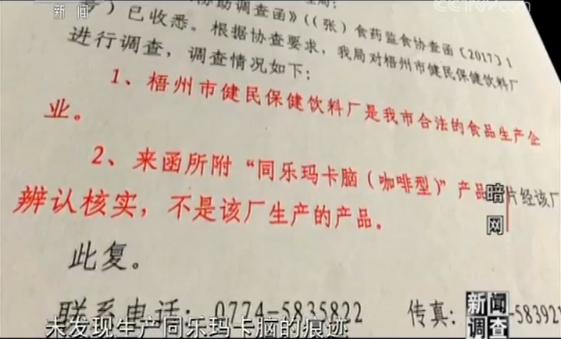 新闻
号）已收悉。根据协查要求，我局对梧州市健民保健饮料厂
协助调查函》（（张）食药监食协查函〔2017〕1
进行调查，调查情况如下：
1、梧州市健民保健饮料厂是我市合法的食品生产企
业。
2、来函所附“同乐玛卡脑（咖啡型）”产品 片经该厂
辨认核实，不是该厂生产的产品。
此复。
联系电话：0774-5835822 传真： -583921
暗网
新闻调查
未发现生产同乐玛卡脑的痕迹